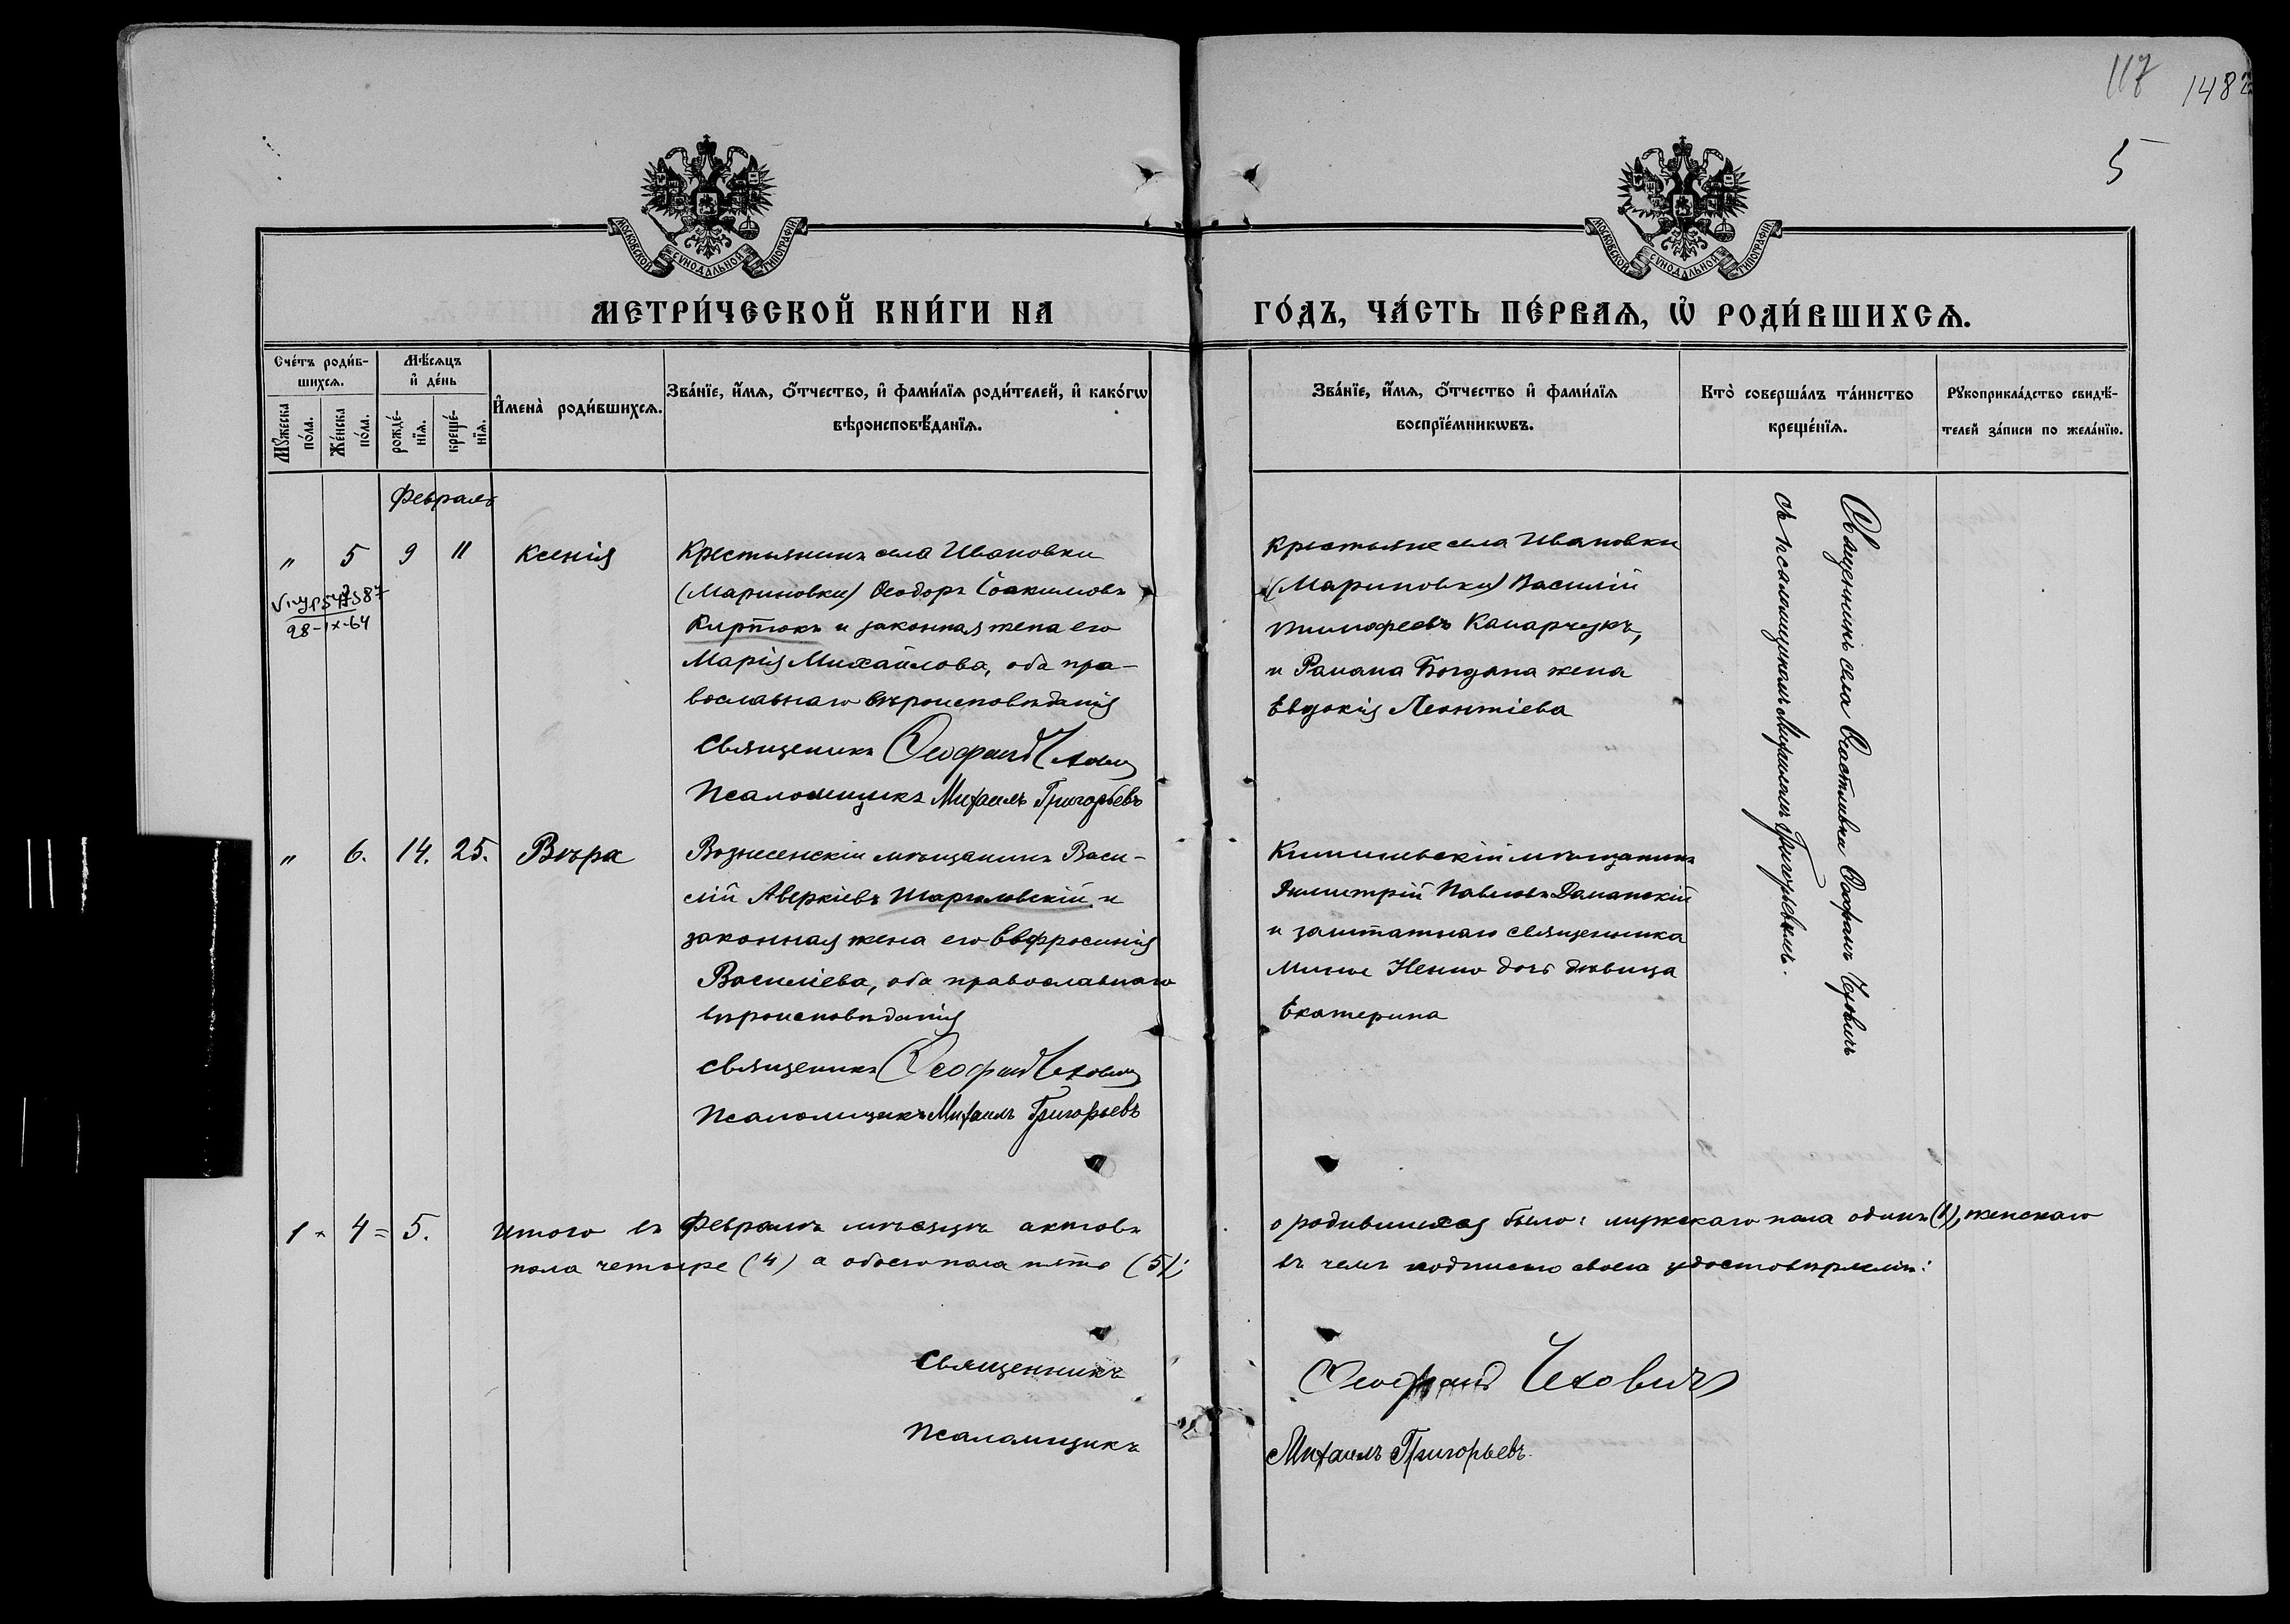 117 1482
5
МОСКОВСКОЙ СѴНОДАЛЬНОЙ ТИПОГРАФІИ
МОСКОВСКОЙ СѴНОДАЛЬНОЙ ТИПОГРАФІИ
МЕТРИ́ЧЕСКОЙ КНИ́ГИ НА
ГО́ДЪ, ЧА́СТЬ ПЕ́РВАѦ, Ѡ҆ РОДИ́ВШИХСѦ.
Сче́тъ роди́в-
шихсѧ.
Мꙋ́жеска по́ла.
Же́нска по́ла.
Мѣ́сѧцъ
и҆ де́нь
рожде́-
нїѧ.
креще́-
нїѧ.
И҆мена̀ роди́вшихсѧ.
Зва́нїе, и҆́мѧ, ѻ҆́тчество, и҆ фами́лїѧ роди́телей, и҆ како́гѡ
вѣроисповѣ́данїѧ.
Зва́нїе, и҆́мѧ, ѻ҆́тчество и҆ фами́лїѧ
воспрїе́мникѡвъ.
Кто̀ соверша́лъ та́инство
креще́нїѧ.
Рꙋкоприкла́дство свидѣ́-
телей за́писи по жела́нїю.
Февраль
" 5 9 11 Ксенія
28-IX-64
Крестьянинъ села Ивановки
(Мариновки) Ѳеодоръ Іоакимовъ
Киртокъ и законная жена его
Марія Михайлова, оба пра-
вославнаго вѣроисповѣданія
Священикъ Ѳеофанъ Чеховичъ
Псаломщикъ Михаилъ Григорьевъ
Крестьяне села Ивановки
(Мариновки) Василій
Тимофеевъ Капарчукъ,
и Романа Богдана жена
Евдокія Леонтіева
Священникъ села Счастливки Ѳеофанъ Чеховичъ
съ псаломщикомъ Михаиломъ Григорьевымъ.
" 6. 14. 25. Вѣра
Вознесенскій мѣщанинъ Васи-
лій Аверкіевъ Шаргаловскій и
законная жена его Евфросинія
Василіева, оба православнаго
вѣроисповѣданія
Священикъ Ѳеофанъ Чеховичъ
Псаломщикъ Михаилъ Григорьевъ
Кишиневскій мѣщанинъ
Димитрій Павловъ Даманскій
и заштатнаго священника
Ненно дочь дѣвица
Екатерина
1 + 4 = 5. Итого въ Февралѣ мѣсяцѣ актовъ
о родившихся было: мужскаго пола одинъ (1), женскаго
пола четыре (4) а обоего пола пять (5);
въ чемъ подписью своею удостовѣряемъ:
Священникъ
Ѳеофанъ Чеховичъ
Псаломщикъ
Михаилъ Григорьевъ